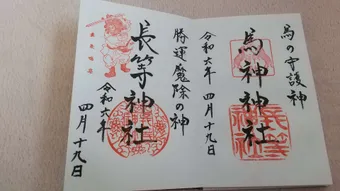 馬の守護神
馬神神社
令和六年 四月十九日
勝運魔除の神
長等神社
令和六年
四月十九日